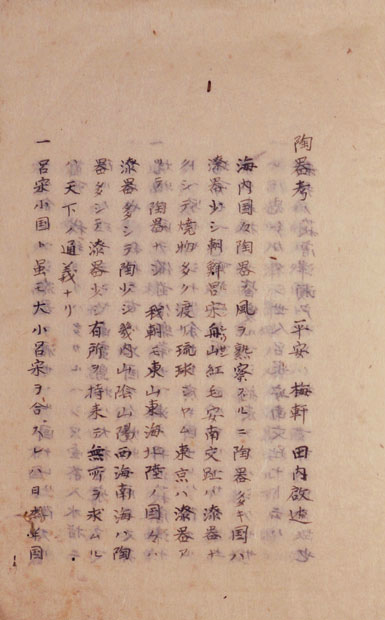 陶器考 平安 梅軒 田内
海内国々陶器ノ風ヲ熟察スルニ陶器多キ国ハ
漆器少シ朝鮮呂宋 紅毛安南交趾ハ漆器
シテ焼物多ク渡リ琉球 東京ハ漆器
陶器ナシ 我朝モ東山東海北陸ノ国々ハ
漆器多シテ陶少シ畿内山陰山陽西海南海ハ陶
器多シテ漆器少シ有所ヲ将来シ無所ヲ求ムル
天下ノ通義ナリ
一 呂宋小国ト虽モ大小呂宋ヲ合 ハ日本 国